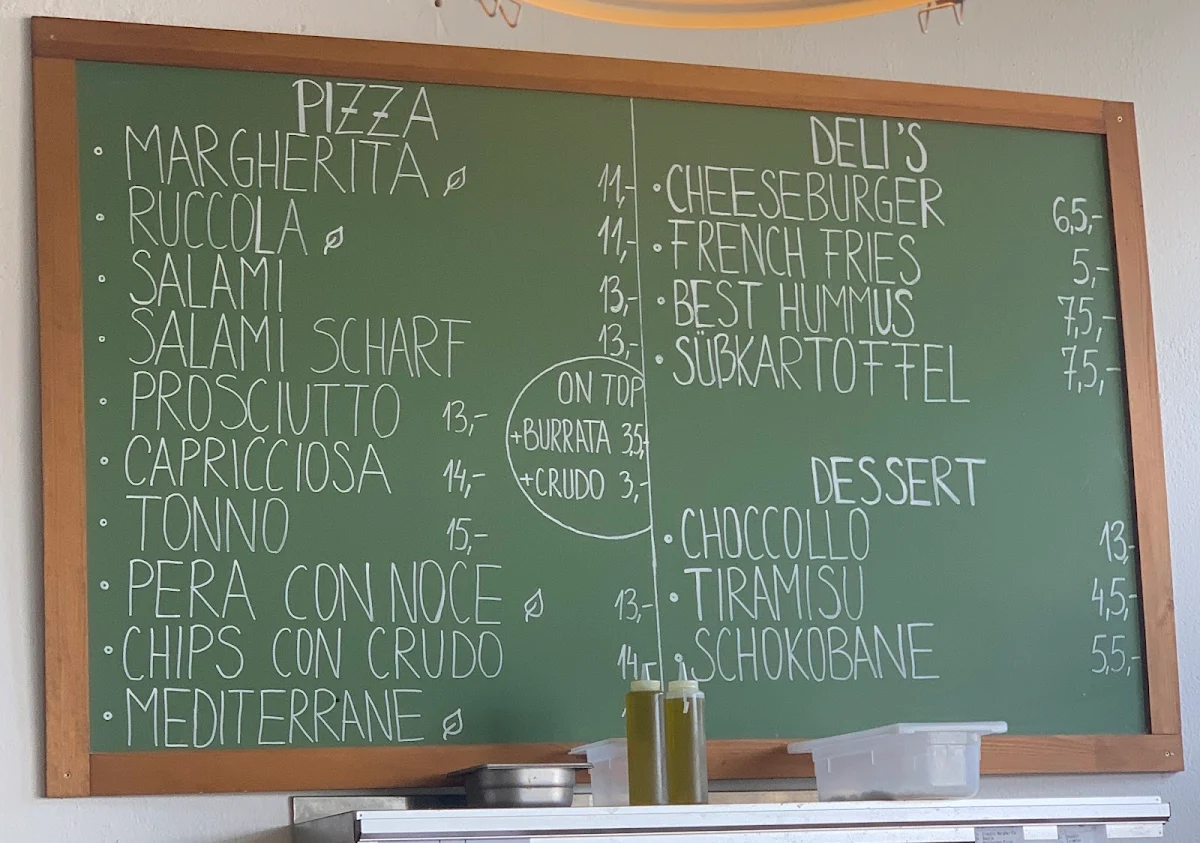 PIZZA
MARGHERITA 11,-
RUCCOLA 11,-
SALAMI 13,-
SALAMI SCHARF 13,-
PROSCIUTTO 13,-
CAPRICCIOSA 14,-
TONNO 15,-
PERA CON NOCE 13,-
CHIPS CON CRUDO 14,
MEDITERRANE
ON TOP
+BURRATA 3,5,-
+CRUDO 3,-
DELI'S
CHEESEBURGER 6,5,-
FRENCH FRIES 5,-
BEST HUMMUS 7,5,-
SÜßKARTOFFEL 7,5,-
DESSERT
CHOCCOLLO 13,-
TIRAMISU 4,5,-
SCHOKOBANE 5,5,-